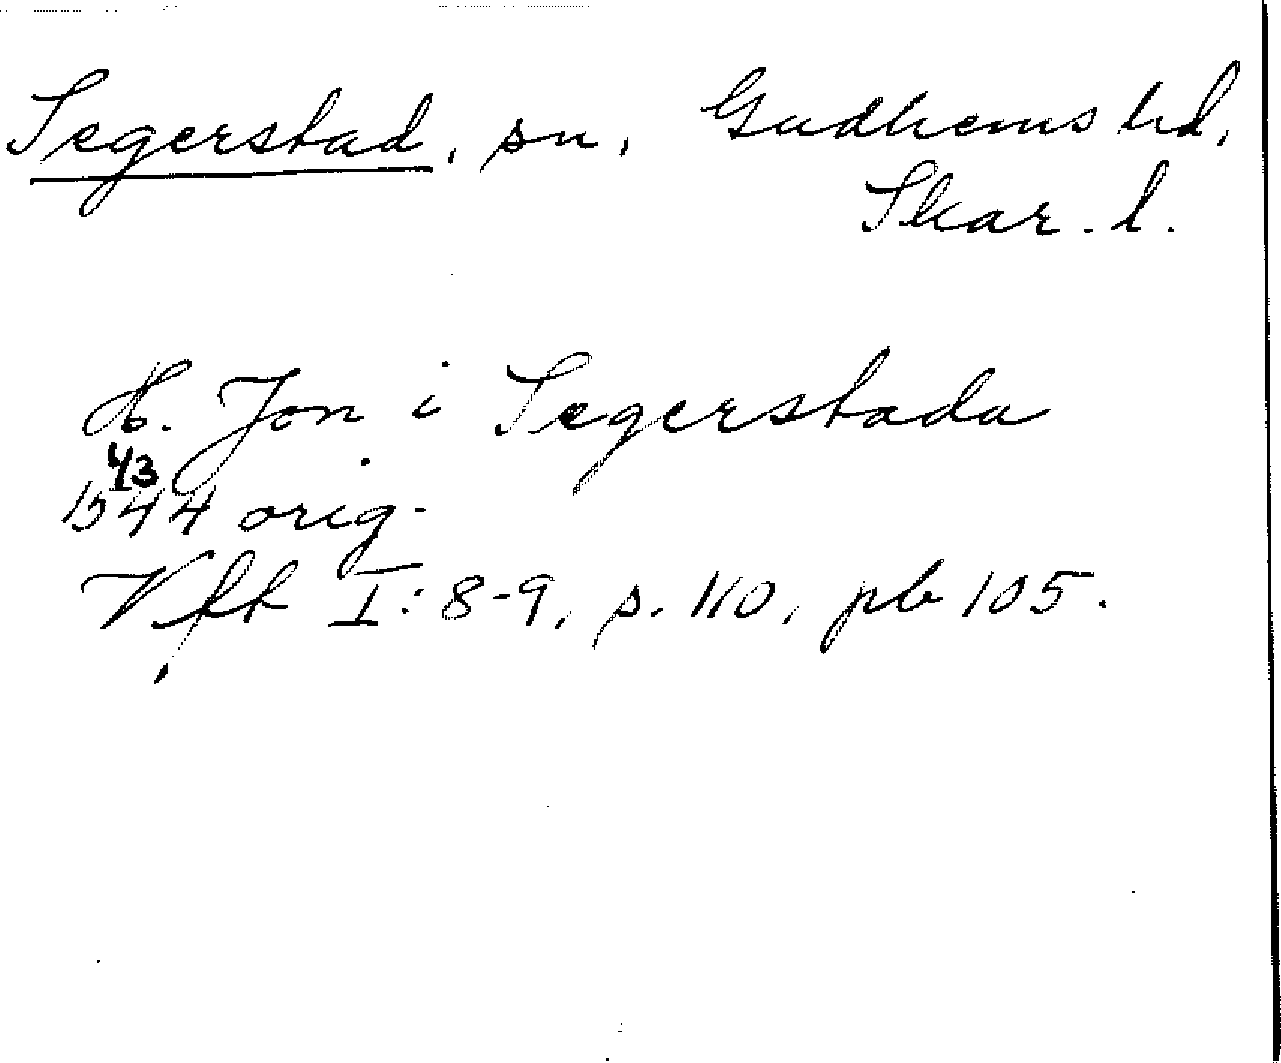 Segerstad, sn, Gudhems hd,
Skar. l.
H. Jon i Segerstada
43
1544 orig.
Vfk I: 8-9, s. 110, pb 105.